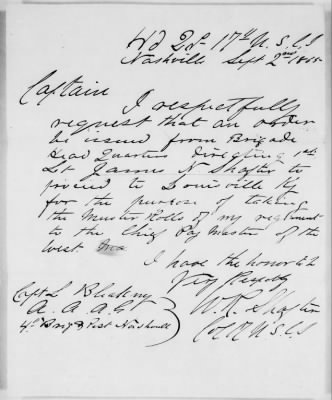 Hd Qr 17th U.S.C.I
Nashville Sept 2nd 1865
Captain
I respectfully
request that an order
be issued from Brigade
Head Quarters directing 1st
Lt James N Shafter to
proceed to Louisville Ky
for the purpose of taking
the Muster Rolls of my regiment
to the Chief Pay Master of the
West
I have the honor to be
Very Respctly
W. R. Shafter
Col 17 U.S.C.I
Capt L Blakeny
A. A. A. G
4th Brig Post Nashville